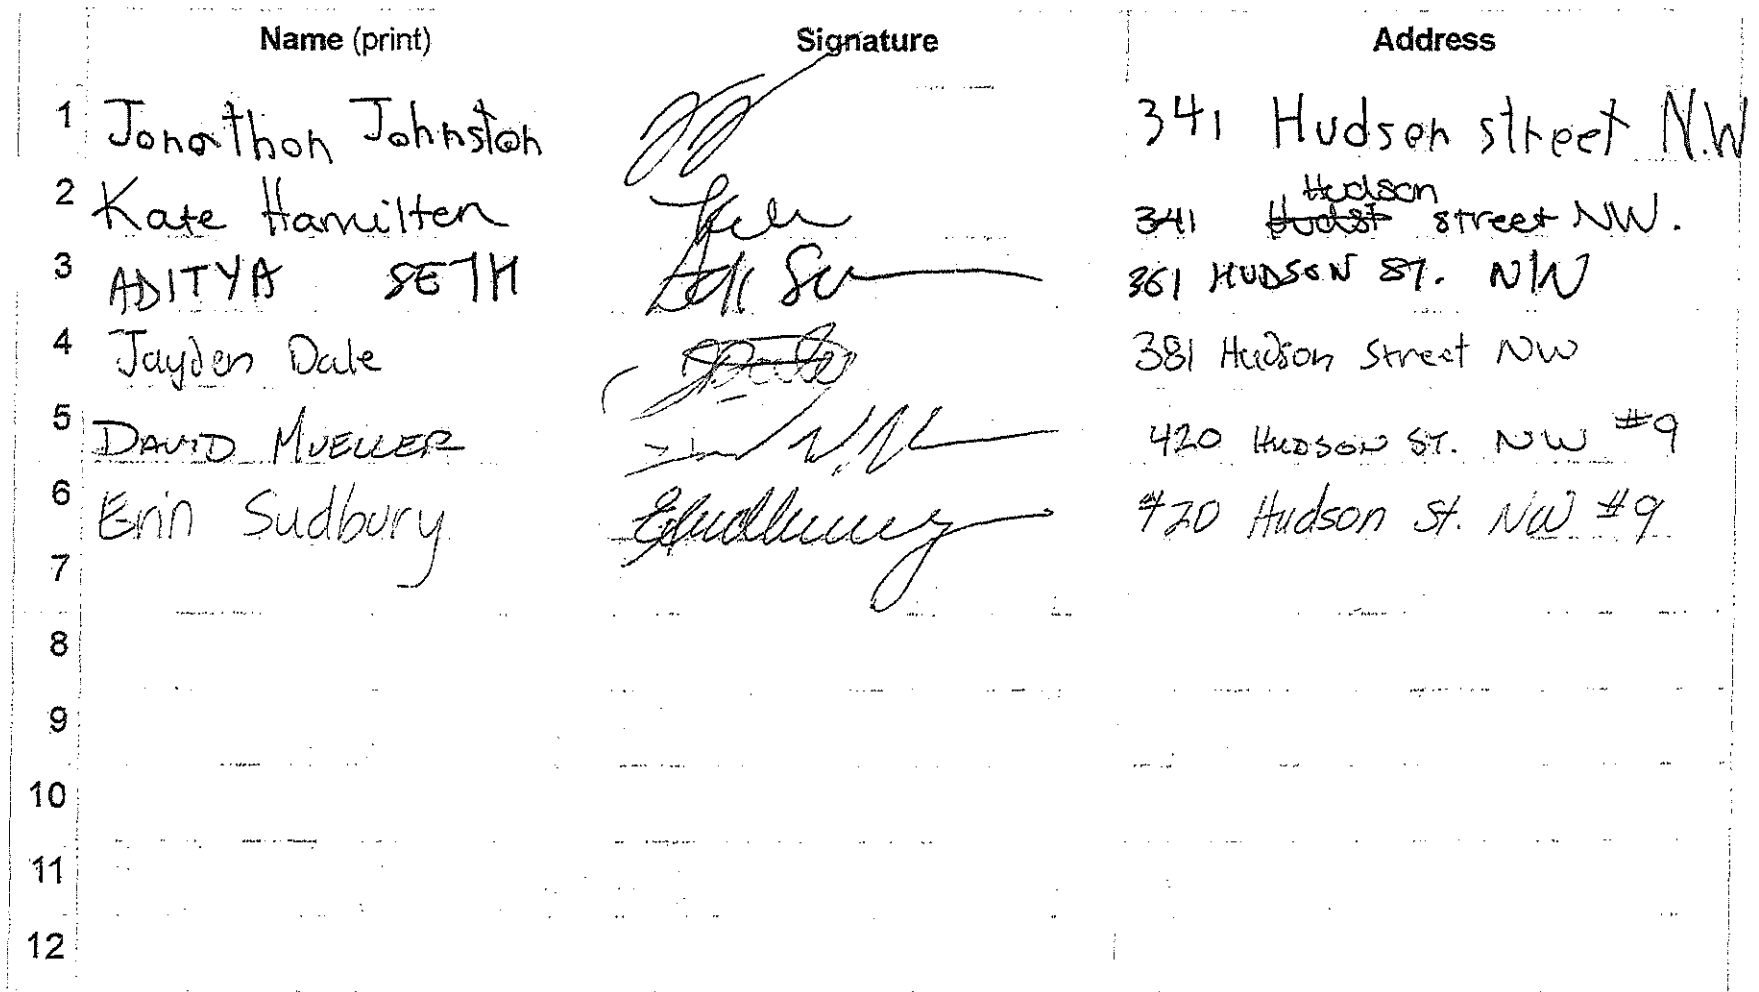 Name (print) Signature Address
1 Jonathon Johnston 341 Hudson street N.W
2 Kate Hamilten 341 Hudson street NW.
3 ADITYA SETH 361 HUDSON ST. NW
4 Jayden Dale 381 Hudson Street NW
5 DAVID MUELLER 420 HUDSON ST. NW #9
6 Erin Sudbury 420 Hudson St. NW #9
7
8
9
10
11
12